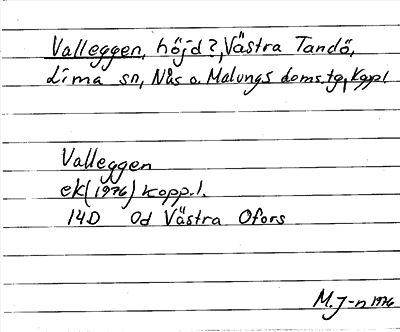 Valleggen, höjd?, Västra Tandö,
Lima sn, Nås o. Malungs doms.tg, Kppl
Valleggen
ek (1976) kopp.l.
14D 0d Västra Ofors
M. J-n 1976